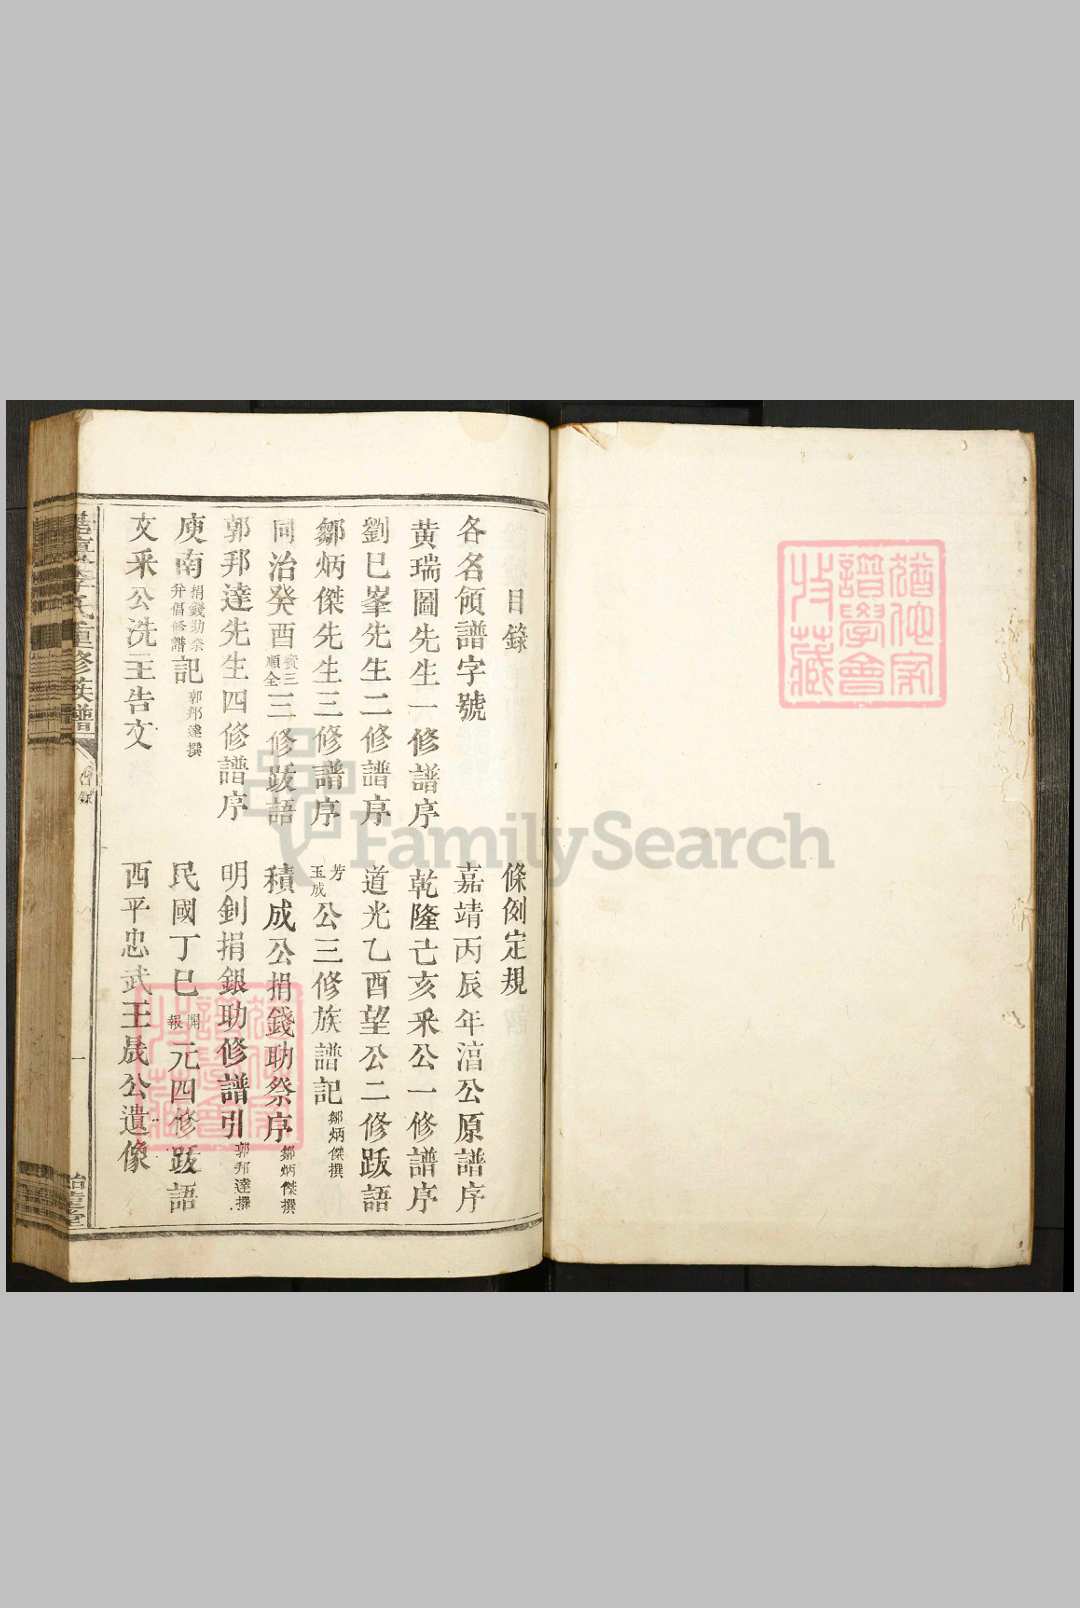 目錄
條例定規
各名領譜字號
嘉靖丙辰年湻公原譜序
黄瑞圖先生一修譜序
乾隆己亥釆公一修譜序
劉巳峯先生二修譜序
道光乙酉望公二修跋語
鄒炳傑先生三修譜序
芳玉成公三修族譜記鄒炳傑撰
同治癸酉賓三順全三修跋語
積成公捐錢助祭序鄒炳傑撰
郭邦達先生四修譜序
明釗捐銀助修譜引郭邦達撰
庾南捐錢助祭并倡修譜記郭邦達撰
民國丁巳開報元四修跋語
文釆公洗主告文
西平忠武王晟公遺像
李氏重修族譜
目錄
一
猶他家譜學會收藏
猶他家譜學會收藏
FamilySearch